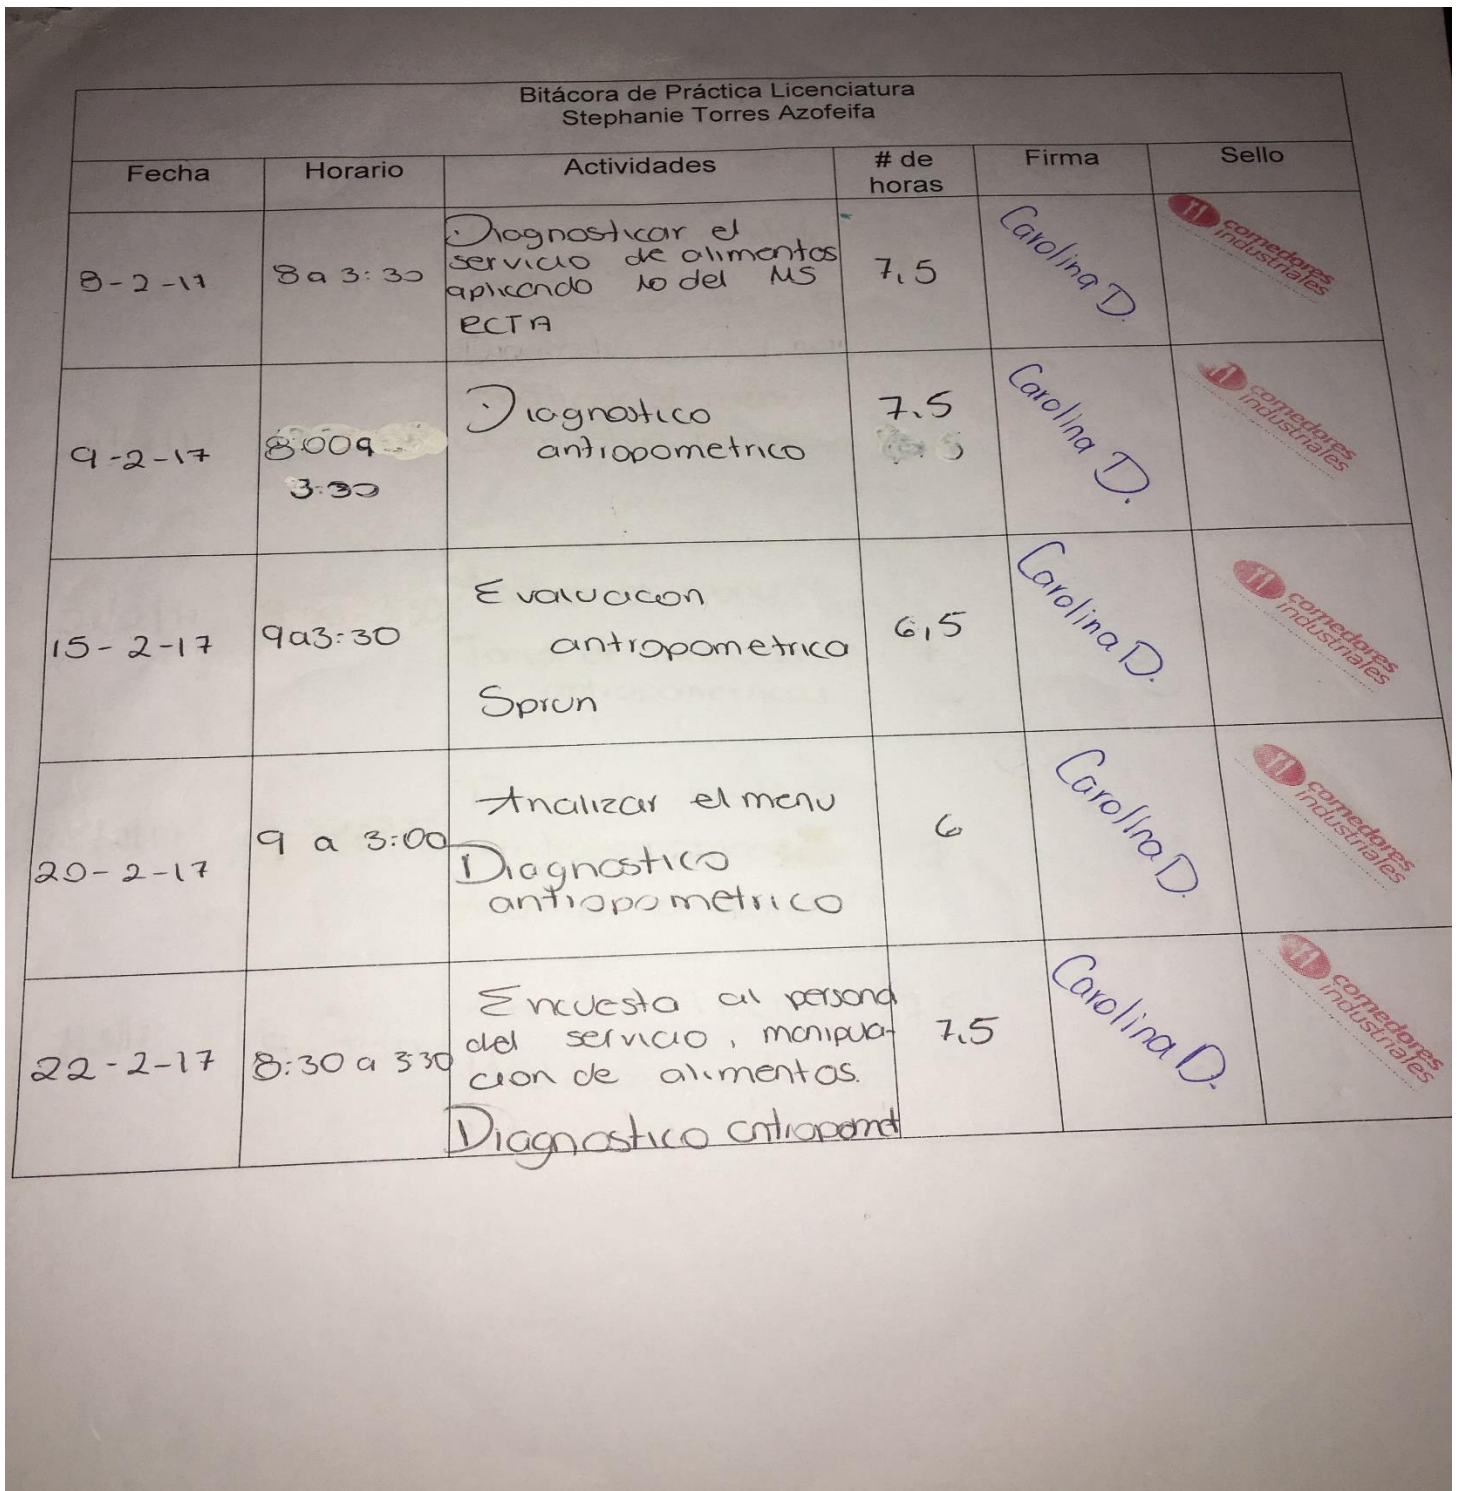 Bitácora de Práctica Licenciatura
Stephanie Torres Azofeifa
Fecha Horario Actividades # de horas Firma Sello
8-2-17
8 a 3:30
Diagnosticar el
servicio de alimentos
aplicando lo del MS
7,5
Carolina D.
comedores
industriales
9-2-17
8:00 a
3:30
Diagnostico
antropometrico
7.5
Carolina D.
comedores
industriales
15-2-17
9 a 3:30
Evaluacion
antropometrica
6,5
Carolina D.
comedores
industriales
20-2-17
9 a 3:00
Analizar el menu
Diagnostico
antropometrico
6
Carolina D.
comedores
industriales
22-2-17
8:30 a 330
Encuesta al personal
del servicio, manipula-
cion de alimentos.
Diagnostico antropomet
7.5
Carolina D.
comedores
industriales